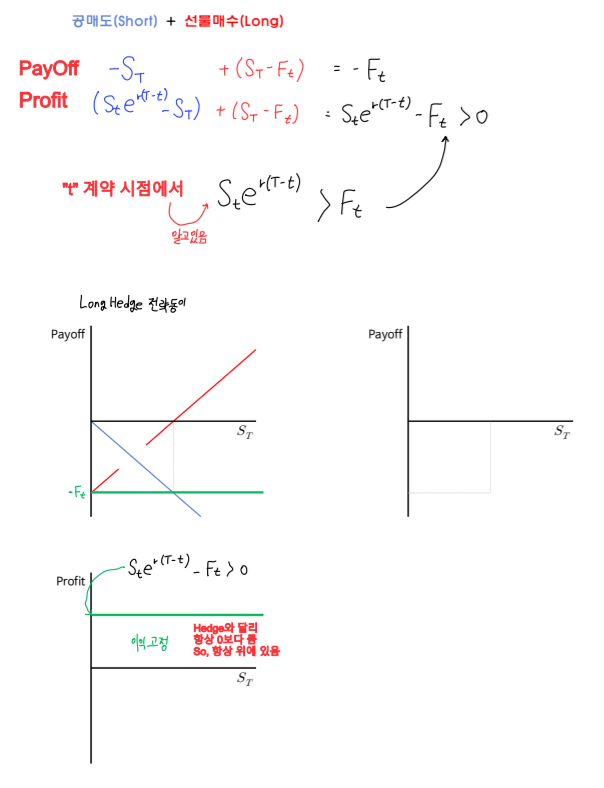 공매도(Short) + 선물매수(Long)
PayOff -S_T + (S_T - F_t) = - F_t
Profit (S_t e^{r(T-t)} - S_T) + (S_T - F_t) = S_t e^{r(T-t)} - F_t > 0
"t" 계약 시점에서 S_t e^{r(T-t)} > F_t
알고있음
Long Hedge 전략동이
Payoff
S_T
-F_t
Payoff
S_T
S_t e^{r(T-t)} - F_t > 0
Profit
이익고정
Hedge와 달리
항상 0보다 큼
So, 항상 위에 있음
S_T